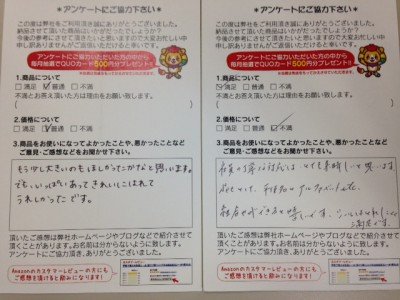 ＊アンケートにご協力下さい＊
この度は弊社をご利用頂き誠にありがとうございました。
納品させて頂いた商品はいかがだったでしょうか？
今後の参考にさせて頂きたいと思いますので大変お忙しい中
申し訳ありませんがご返信いただけると幸いです。
アンケートにご協力いただいた方の中から
毎月抽選でQUOカード500円分プレゼント!!
1.商品について
満足 普通 不満
不満とお答え頂いた方は理由をお願い致します。
2.価格について
満足 普通 不満
3.商品をお使いになってよかったことや、悪かったことなど
ご意見・ご感想などをお聞かせ下さい。
もう少し大きいのもほしかったかなと思います。
でも、いっぱいあってきれいにとれて
うれしかったです。
頂いたご感想は弊社ホームページやブログなどで紹介させて
頂くことがあります。お名前は分からないように致します。
アンケートにご協力頂き、ありがとうございました。
Amazonのカスタマーレビューの方にも
ご感想を頂けると励みになります！
＊アンケートにご協力下さい＊
この度は弊社をご利用頂き誠にありがとうございました。
納品させて頂いた商品はいかがだったでしょうか？
今後の参考にさせて頂きたいと思いますので大変お忙しい中
申し訳ありませんがご返信いただけると幸いです。
アンケートにご協力いただいた方の中から
毎月抽選でQUOカード500円分プレゼント!!
1.商品について
満足 普通 不満
不満とお答え頂いた方は理由をお願い致します。
2.価格について
満足 普通 不満
3.商品をお使いになってよかったことや、悪かったことなど
ご意見・ご感想などをお聞かせ下さい。
頂いたご感想は弊社ホームページやブログなどで紹介させて
頂くことがあります。お名前は分からないように致します。
アンケートにご協力頂き、ありがとうございました。
Amazonのカスタマーレビューの方にも
ご感想を頂けると励みになります！